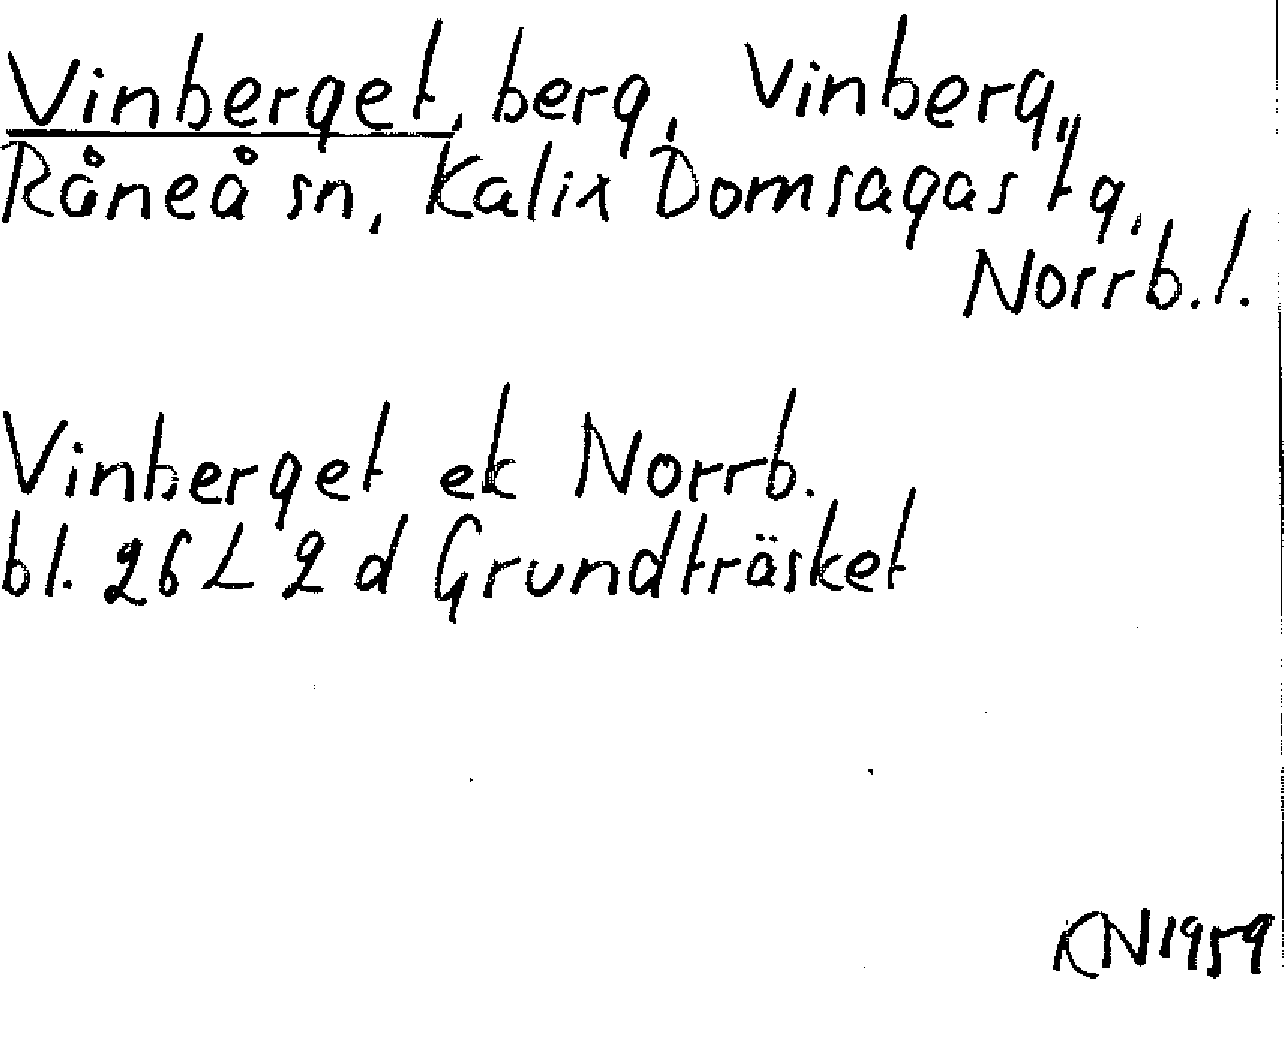 Vinberget, berg, Vinberg,,
Råneå sn, Kalix Domsagas tg,
Norrb. l.
Vinberget ek Norrb.
bl. 26 L 2 d Grundträsket
KN 1959